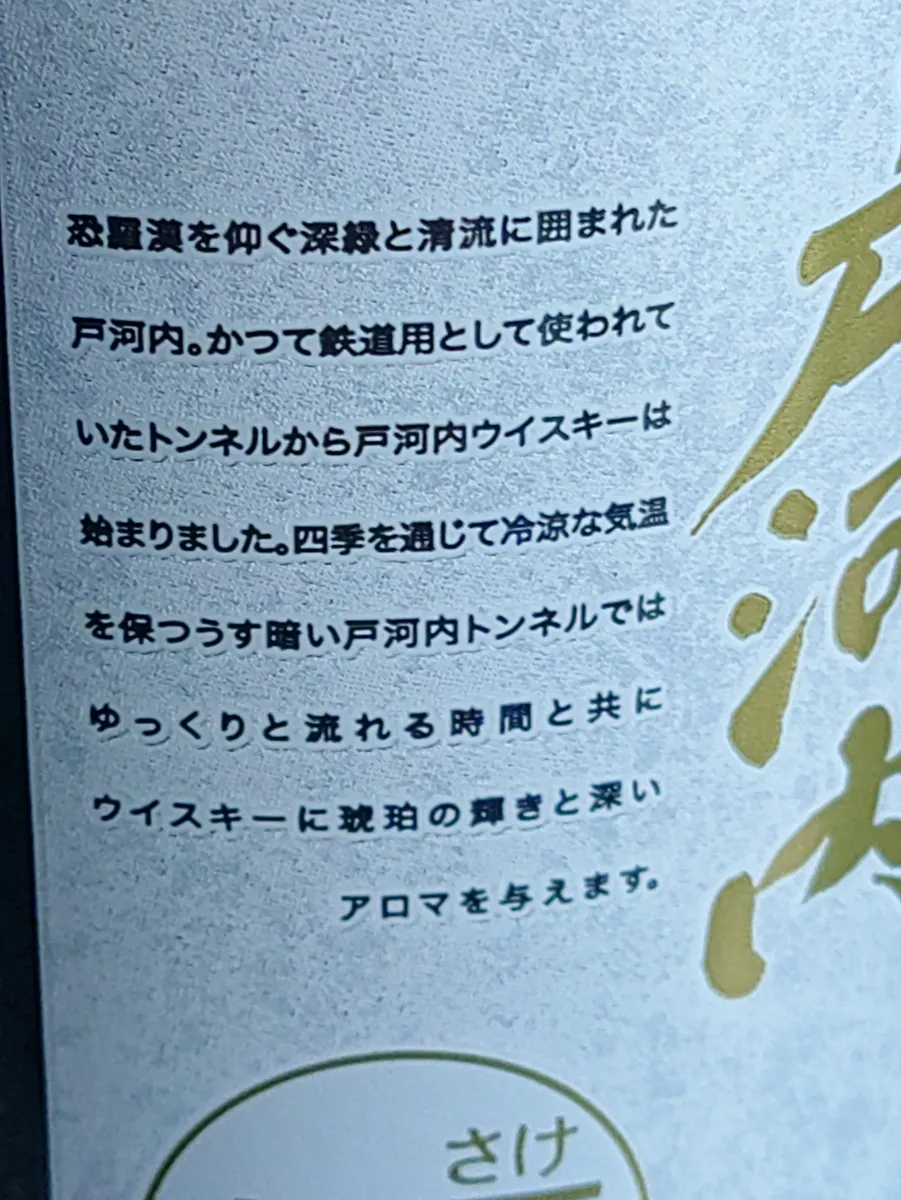 恐羅漢を仰ぐ深緑と清流に囲まれた
戸河内。かつて鉄道用として使われて
いたトンネルから戸河内ウイスキーは
始まりました。四季を通じて冷涼な気温
を保つうす暗い戸河内トンネルでは
ゆっくりと流れる時間と共に
ウイスキーに琥珀の輝きと深い
アロマを与えます。
戸河内
さけ